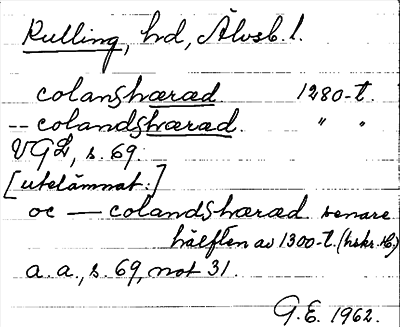 Kulling, hd, Älvsb. l.
colanshærad 1280-t.
-- colandshærad. " "
VGL, s. 69.
[utelämnat:]
oc — colandshærad senare
hälften av 1300-t. (hskr. B)
a. a., s. 69, not 31.
G.E. 1962.